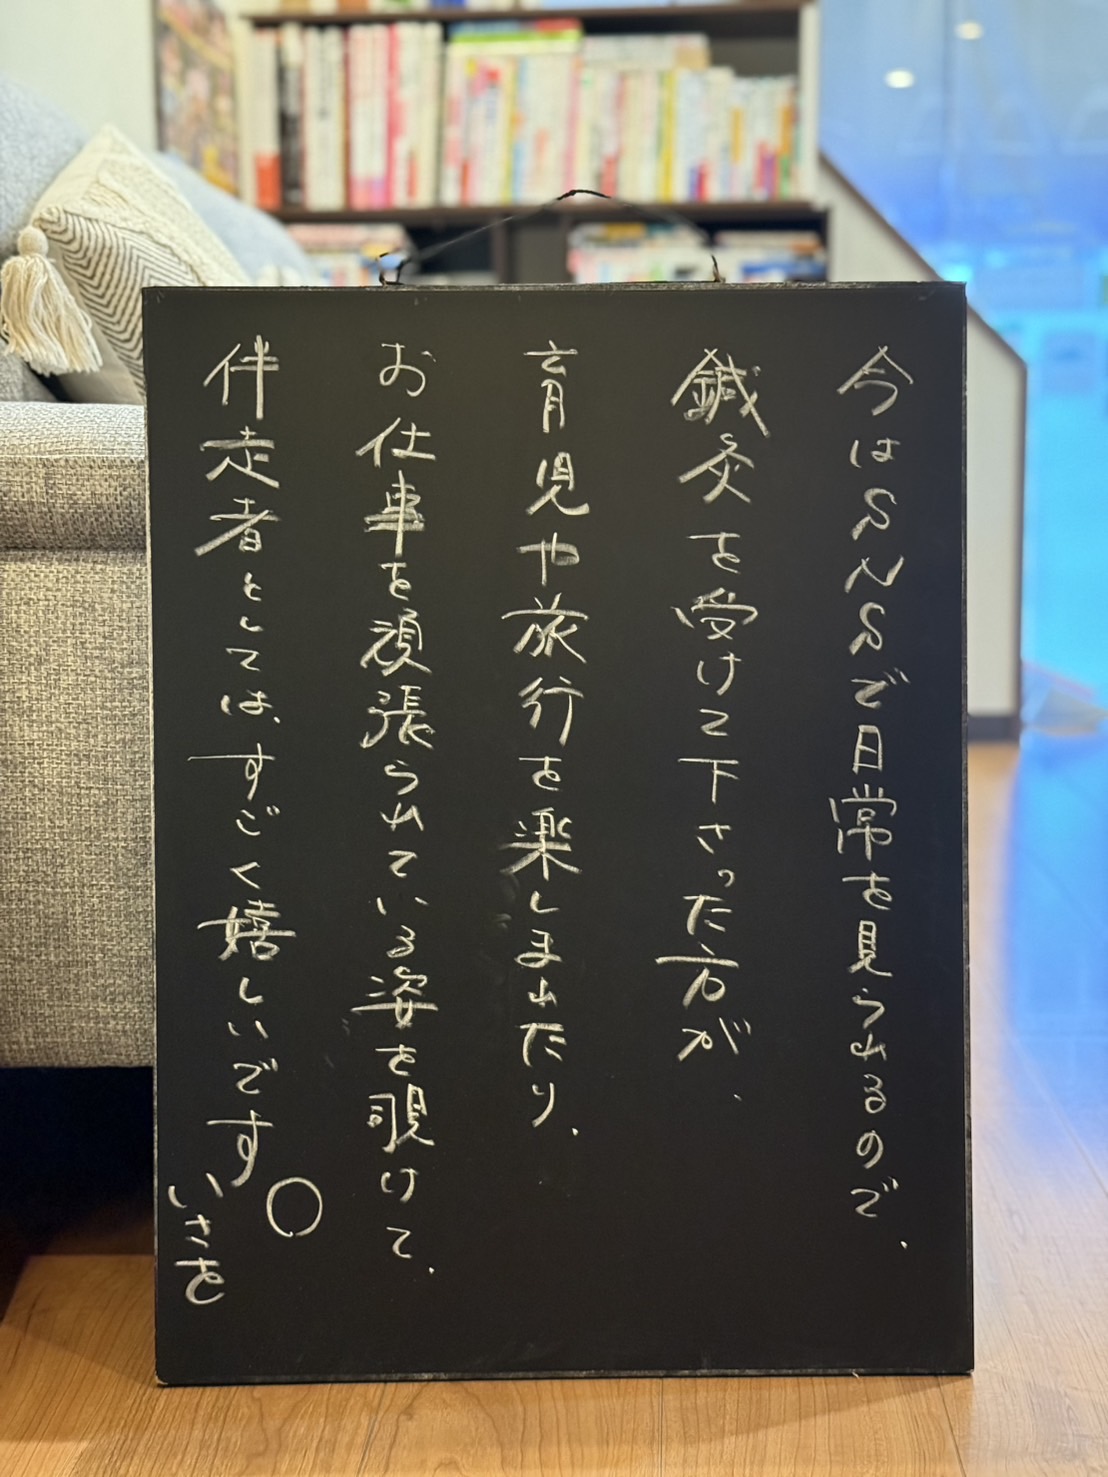 今はSNSで日常を見られるので、
鍼灸を受けて下さった方が、
育児や旅行を楽しまれたり、
お仕事を頑張られている姿を覗けて、
伴走者としては、すごく嬉しいです。
いさを